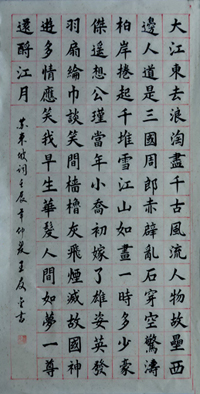 大江東去浪淘盡千古風流人物故壘西
邊人道是三國周郎赤壁亂石穿空驚濤
拍岸捲起千堆雪江山如畫一時多少豪
傑遙想公瑾當年小喬初嫁了雄姿英發
羽扇綸巾談笑間檣櫓灰飛煙滅故國神
遊多情應笑我早生華髮人間如夢一尊
還酹江月
蘇東坡詞壬辰年仲夏王友書